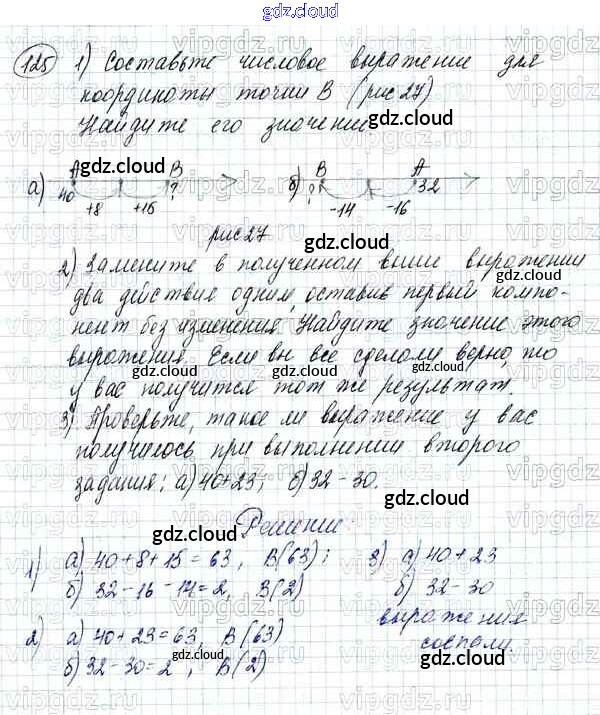 gdz.cloud
125 1) Составьте числовое выражение для
координаты точки В (рис 27)
Найдите его значение
gdz.cloud
а) А 40 +8 +15 В ?
б) В ? -14 -16 А 32
рис 27
gdz.cloud
2) Замените в полученном выше выражении
два действия одним, оставив первый компо-
нент без изменения. Найдите значение этого
выражения. Если вы все сделали верно, то
gdz.cloud
у вас получится тот же результат.
3) Проверьте, такое ли выражение у вас
получилось при выполнении второго
задания: а) 40+23; б) 32-30.
gdz.cloud
Решение
gdz.cloud
1) а) 40+8+15=63, В(63);
б) 32-16-14=2, В(2)
3) а) 40+23
б) 32-30
выражения
совпали.
2) а) 40+23=63, В(63)
б) 32-30=2, В(2)
gdz.cloud